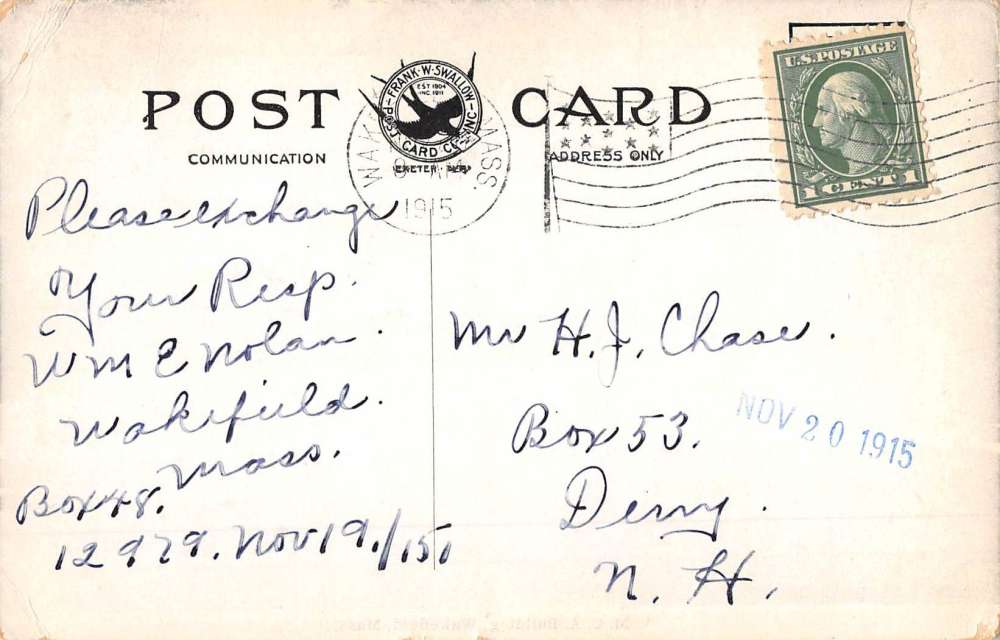 POST CARD
FRANK·W·SWALLOW
EST 1904
INC. 1911
POST CARD CO. INC.
EXETER, N.H.
COMMUNICATION
ADDRESS ONLY
WAK MASS.
1915
U.S. POSTAGE
1 CENT 1
Please exchange
Your Resp.
Wm E Nolan.
Wakefield.
Mass.
Box 48.
12979. Nov 19/15
Mr H. J. Chase.
Box 53.
Derry.
N. H.
NOV 20 1915